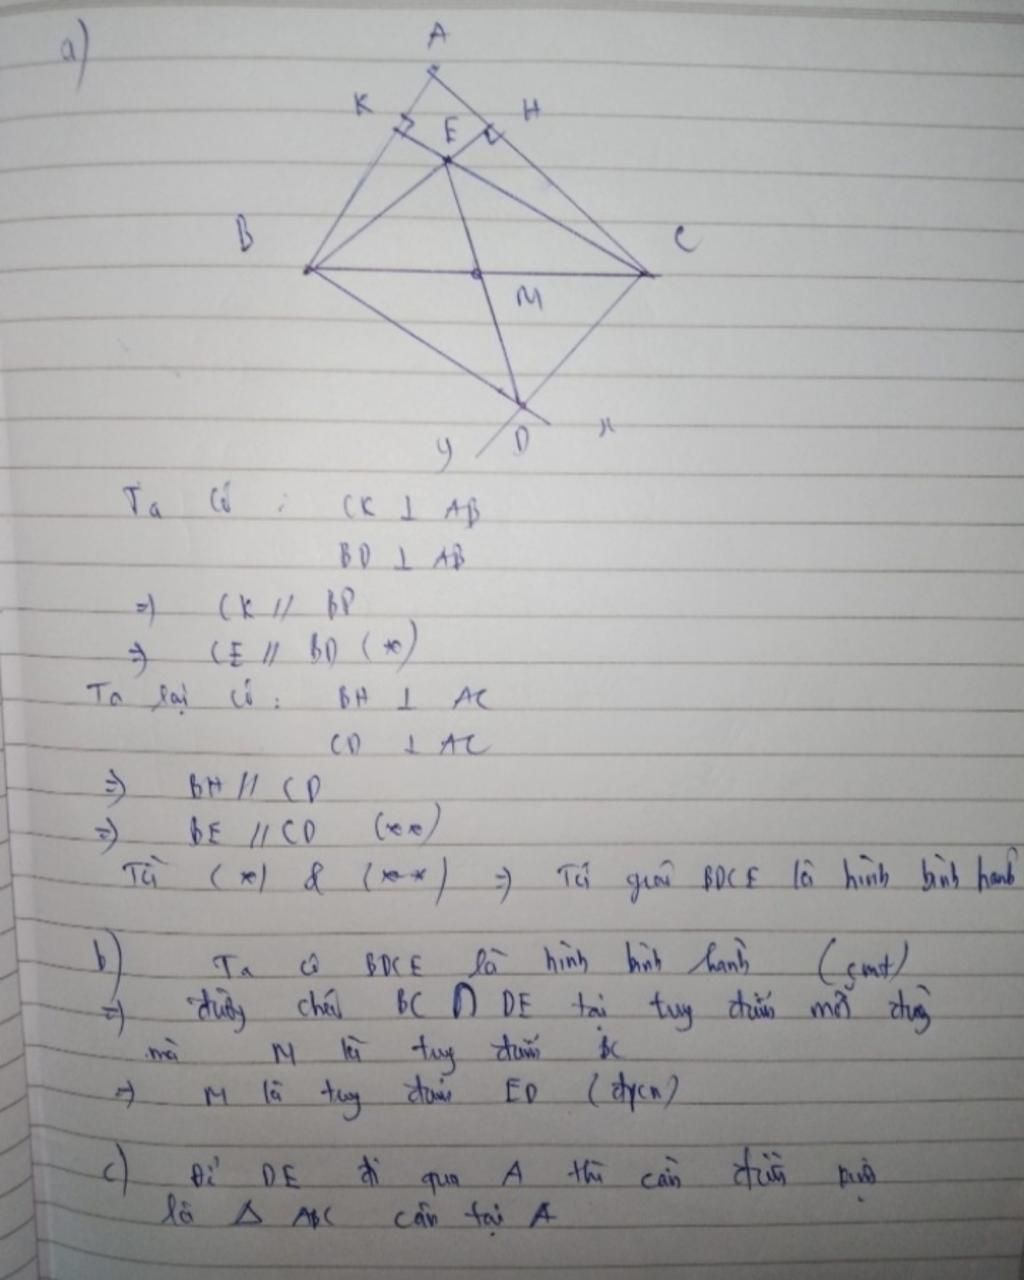 a)
A
K
E
H
B
C
M
y
D
x
Ta có : CK ⊥ AB
BD ⊥ AB
=) CK // BD
=) CE // BD (*)
Ta lại có : BH ⊥ AC
CD ⊥ AC
=) BH // CD
=) BE // CD (**)
Từ (*) & (**) =) Tứ giác BDCE là hình bình hành
b) Ta có BDCE là hình bình hành (cmt)
=) đường chéo BC ∩ DE tại trung điểm mỗi đường
mà M là trung điểm BC
=) M là trung điểm ED (đpcm)
c) Để DE đi qua A thì cần điều kiện
là Δ ABC cân tại A